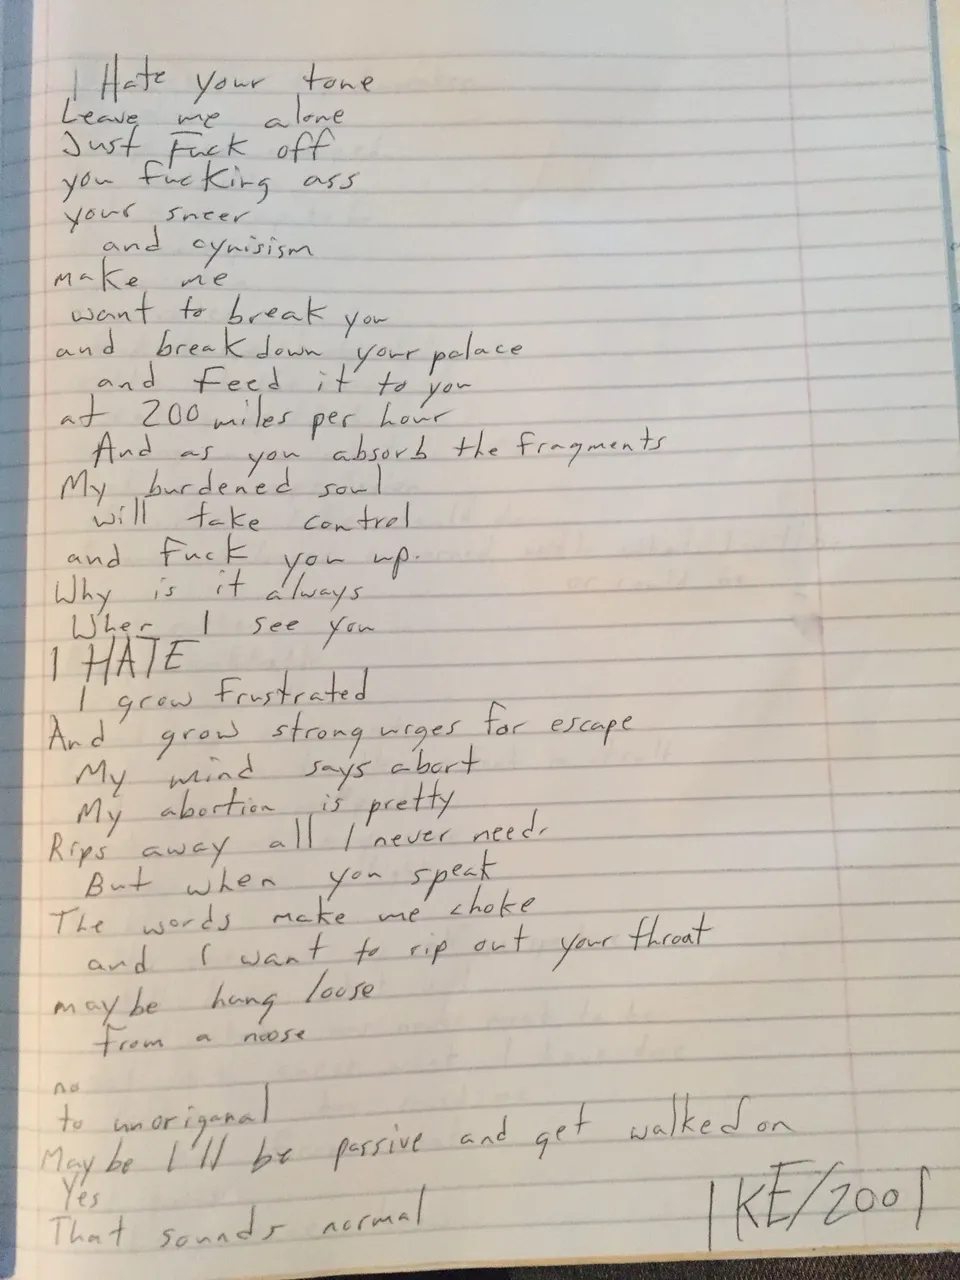 I Hate your tone
Leave me alone
Just Fuck off
you fucking ass
your sneer
and cynisism
make me
want to break you
and break down your palace
and feed it to you
at 200 miles per hour
And as you absorb the fragments
My burdened soul
will take control
and Fuck you up.
Why is it always
When I see you
I HATE
I grow frustrated
And grow strong urges for escape
My mind says abort
My abortion is pretty
Rips away all I never need.
But when you speak
The words make me choke
and I want to rip out your throat
maybe hung loose
from a noose
no
to unoriganal
Maybe I'll be passive and get walked on
Yes
That sounds normal
IKE/2001